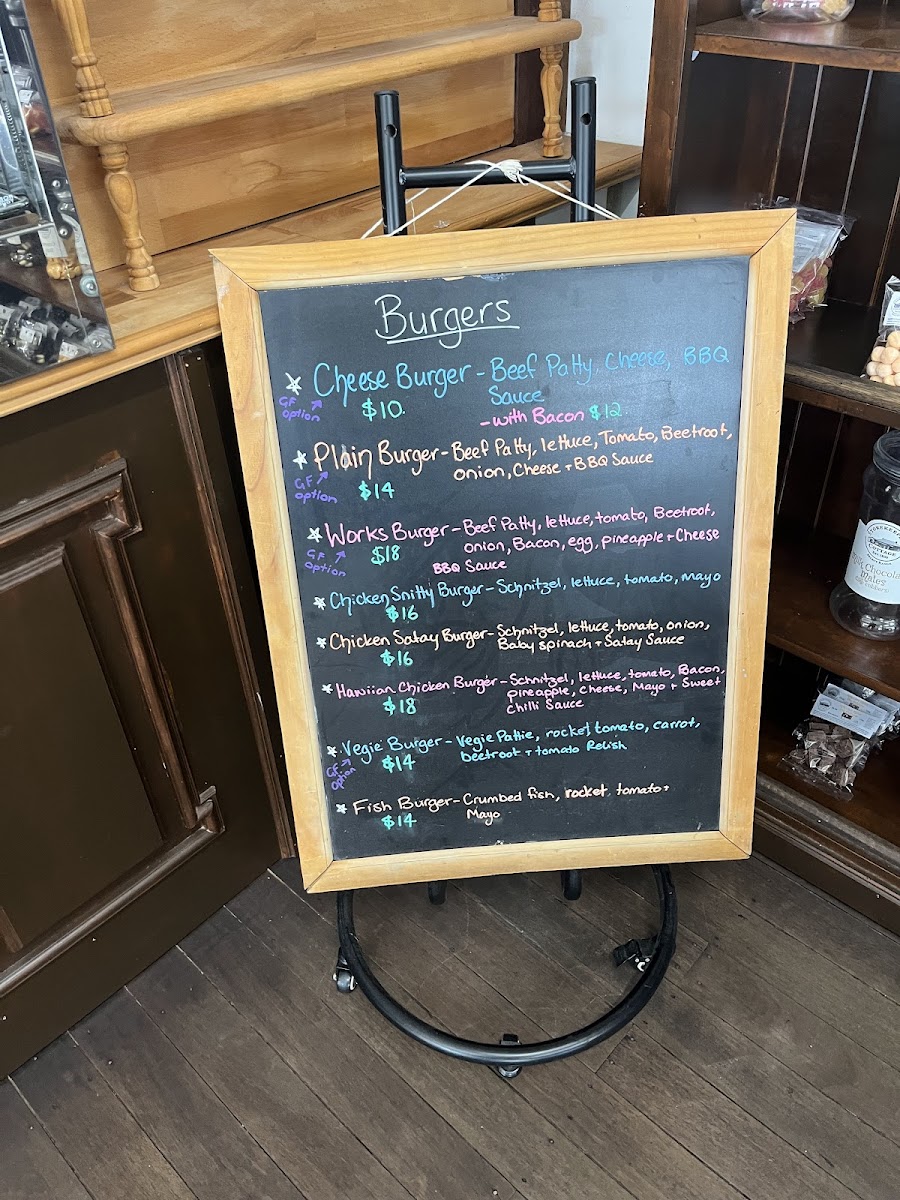 Burgers
☆ Cheese Burger - Beef Patty, Cheese, BBQ
Sauce
GF ↗
option
$10.
- with Bacon $12.
☆ Plain Burger - Beef Patty, lettuce, Tomato, Beetroot,
onion, Cheese + BBQ Sauce
GF ↗
option
$14
☆ Works Burger - Beef Patty, lettuce, tomato, Beetroot,
onion, Bacon, egg, pineapple + Cheese
BBQ Sauce
GF ↗
option
$18
☆ Chicken Snitty Burger - Schnitzel, lettuce, tomato, mayo
$16
☆ Chicken Satay Burger - Schnitzel, lettuce, tomato, onion,
Baby spinach + Satay Sauce
$16
☆ Hawiian Chicken Burger - Schnitzel, lettuce, tomato, Bacon,
pineapple, cheese, Mayo + Sweet
chilli Sauce
$18
☆ Vegie Burger - Vegie Pattie, rocket tomato, carrot,
beetroot + tomato Relish
GF ↗
Option
$14
☆ Fish Burger - Crumbed fish, rocket, tomato +
Mayo
$14
COTTAGE